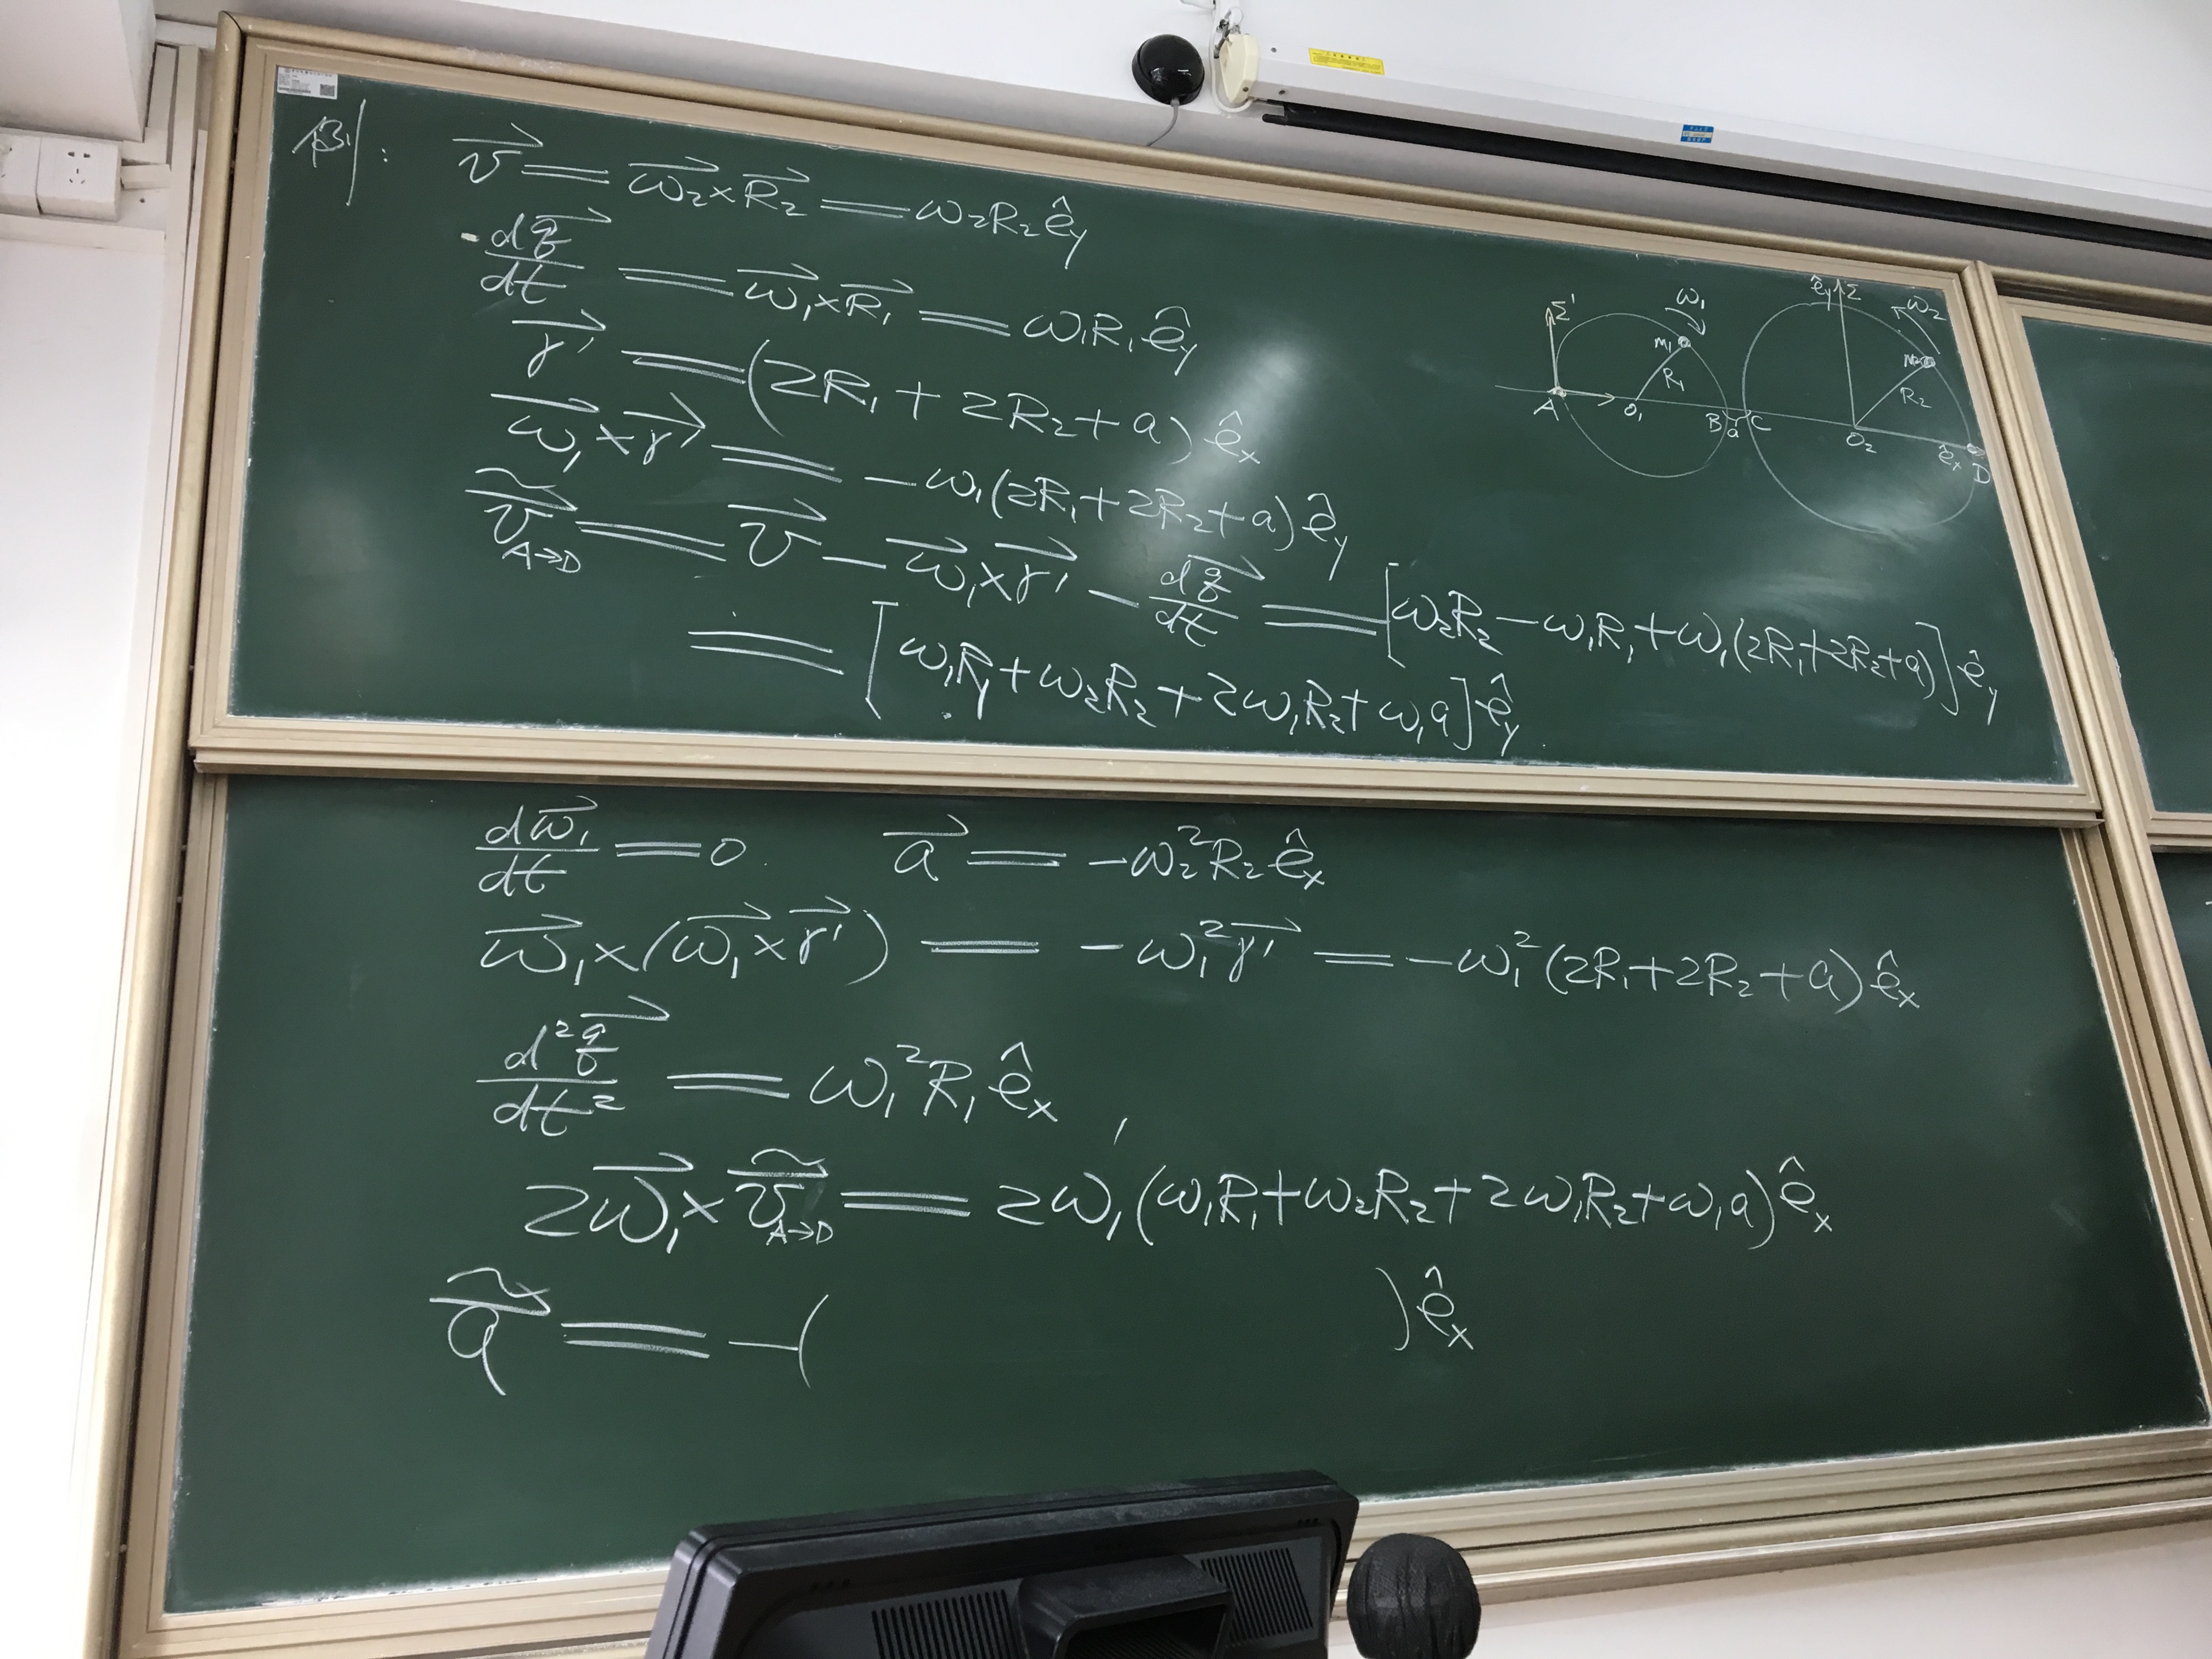 例:
v⃗ = ω⃗₂×R⃗₂ = ω₂R₂ê_y
dq⃗/dt = ω⃗₁×R⃗₁ = ω₁R₁ê_y
r⃗' = (2R₁+2R₂+a)ê_x
ω⃗₁×r⃗' = -ω₁(2R₁+2R₂+a)ê_y
ṽ⃗_A→D = v⃗ - ω⃗₁×r⃗' - dq⃗/dt = [ω₂R₂-ω₁R₁+ω₁(2R₁+2R₂+a)]ê_y
= [ω₁R₁+ω₂R₂+2ω₁R₂+ω₁a]ê_y.
Σ'
ω₁
M₁
R₁
A
O₁
B
a
C
ê_y
Σ
ω₂
M₂
R₂
O₂
ê_x
D
dω⃗₁/dt = 0. a⃗ = -ω₂²R₂ê_x
ω⃗₁×(ω⃗₁×r⃗') = -ω₁²r⃗' = -ω₁²(2R₁+2R₂+a)ê_x
d²q⃗/dt² = ω₁²R₁ê_x,
2ω⃗₁×ṽ⃗_A→D = 2ω₁(ω₁R₁+ω₂R₂+2ω₁R₂+ω₁a)ê_x
ã⃗ = -( )ê_x